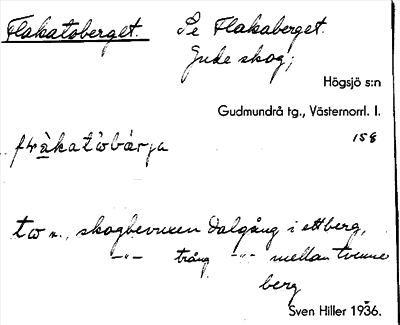 Flakatoberget. Se Flakaberget.
Gude skog;
Högsjö s:n
Gudmundrå tg., Västernorrl. l.
158
tw n., skogbevuxen dalgång i ett berg,
-"- trång -"- mellan tvenne
berg
Sven Hiller 1936.